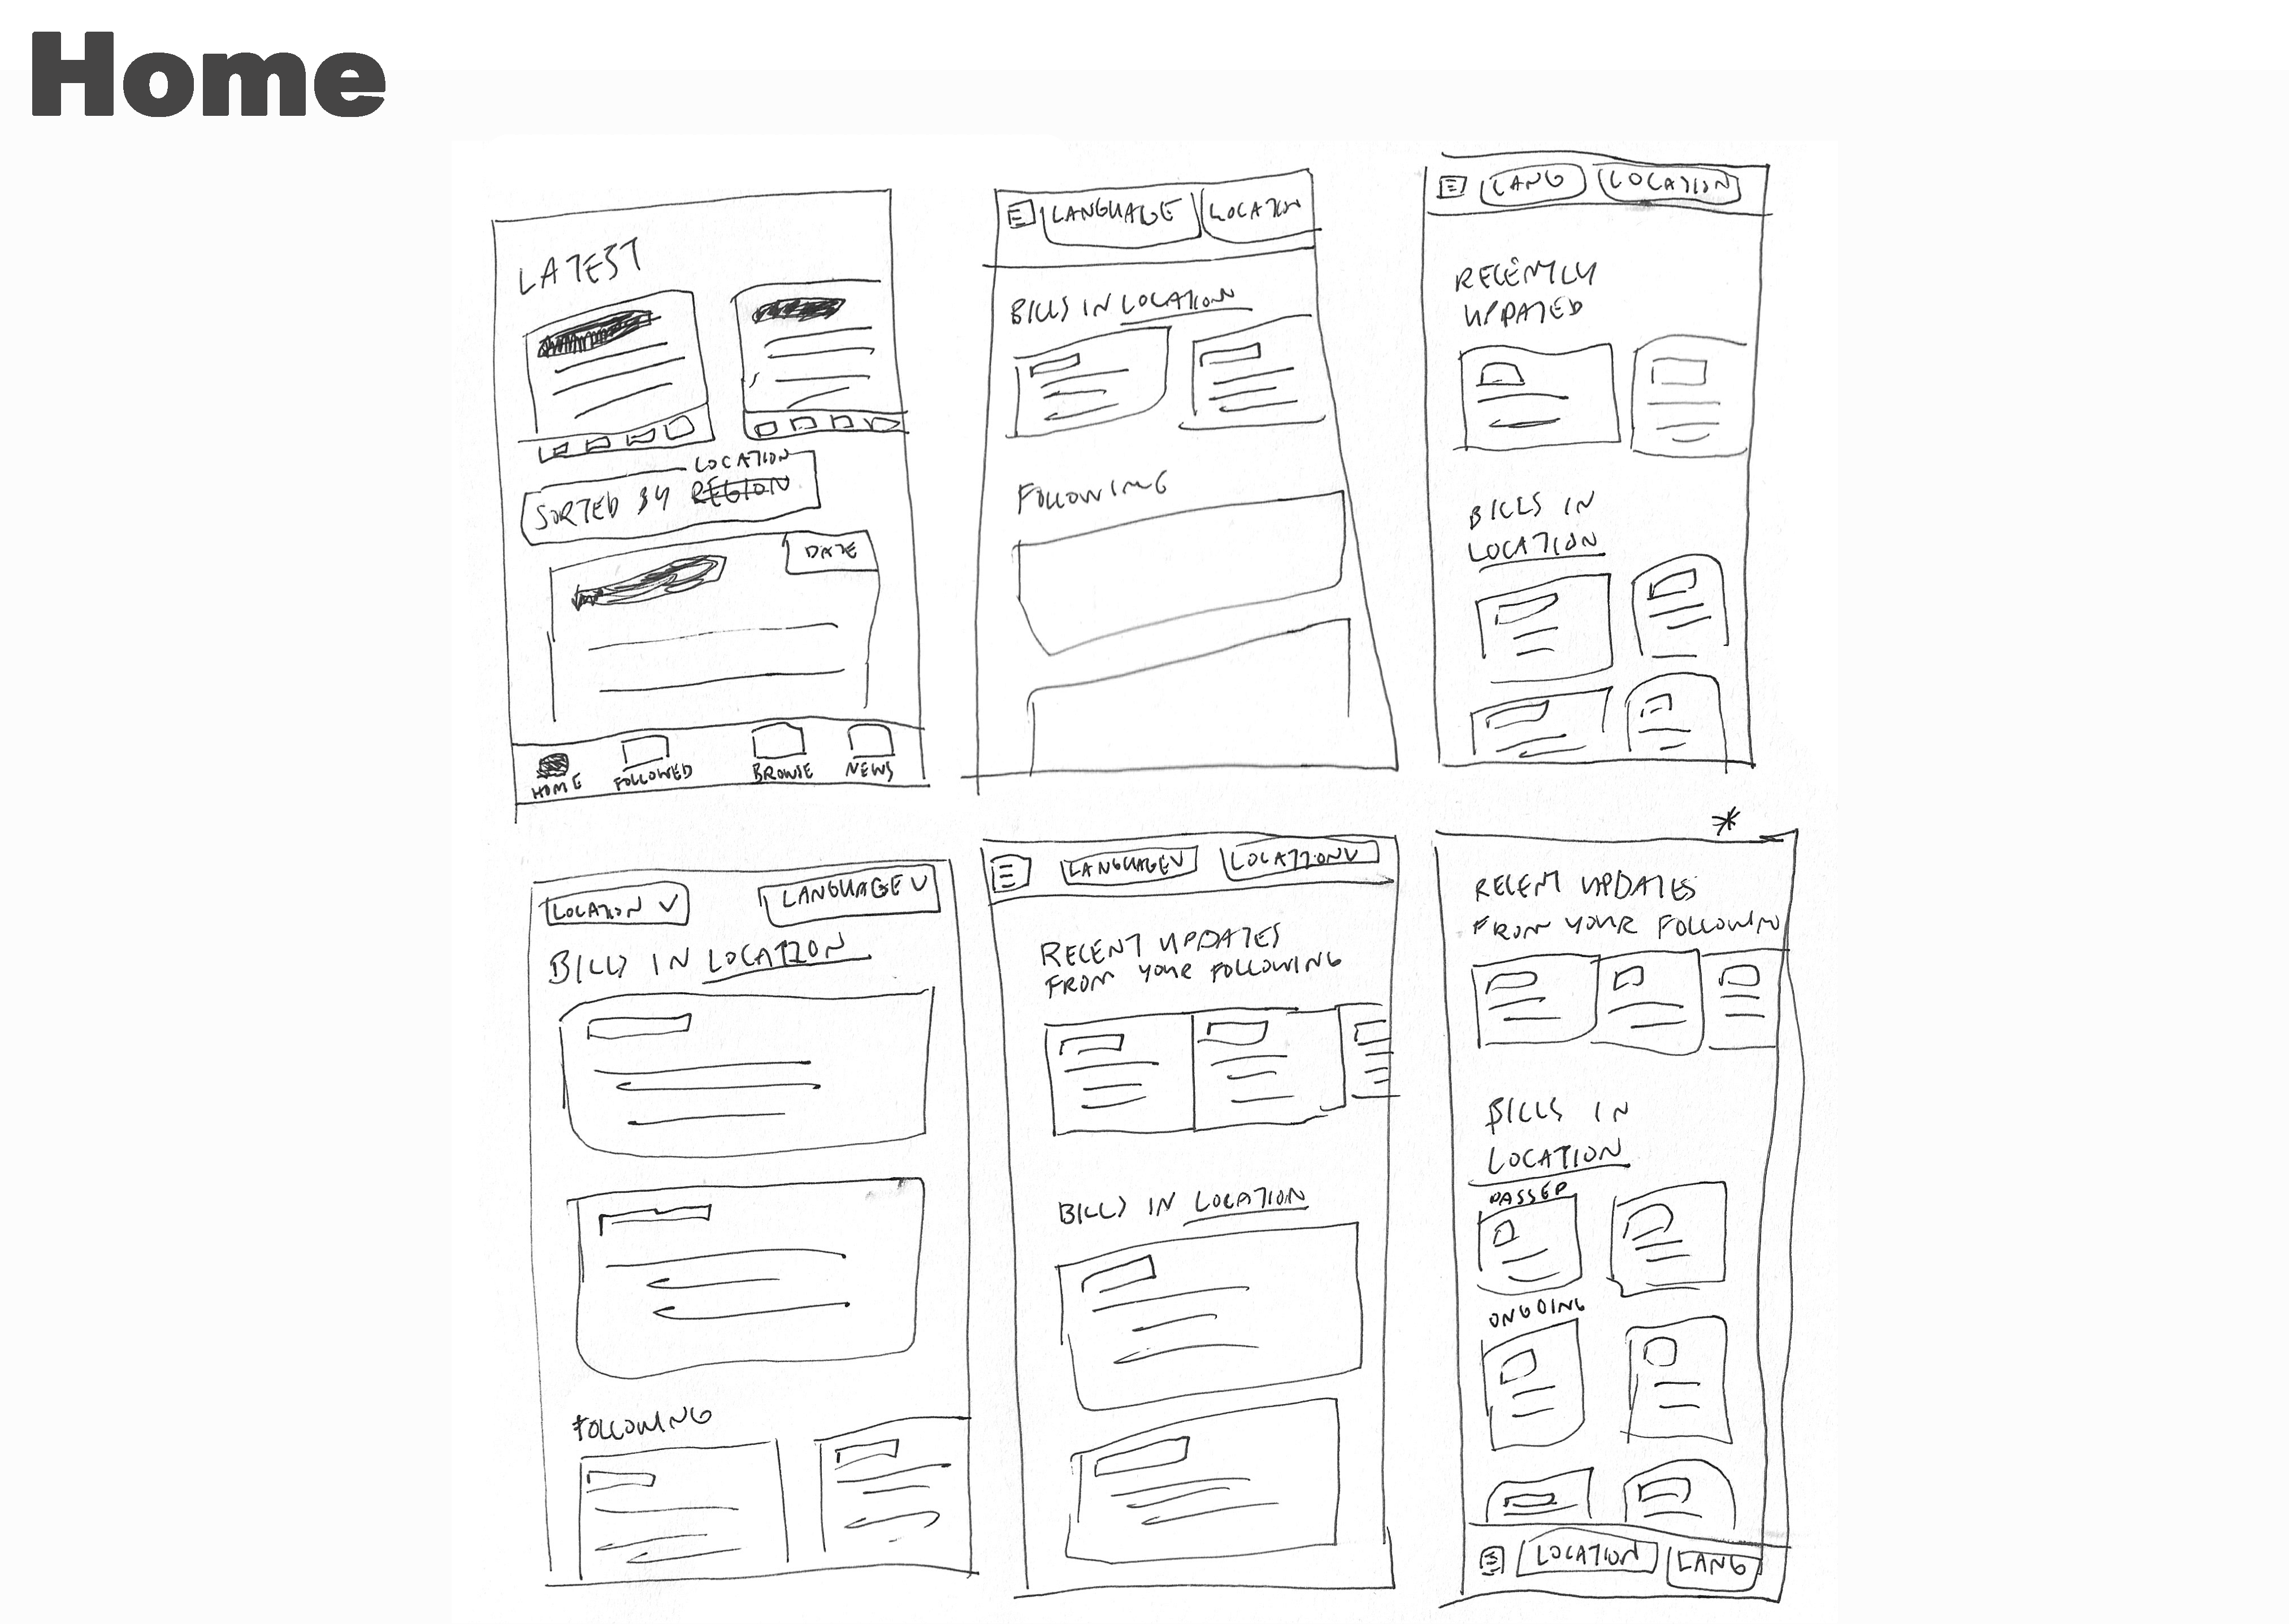 Home
LATEST
LOCATION
SORTED BY REGION
DATE
HOME
FOLLOWED
BROWSE
NEWS
LANGUAGE
LOCATION
BILLS IN LOCATION
FOLLOWING
LANG
LOCATION
RECENTLY
UPDATED
BILLS IN
LOCATION
LOCATION V
LANGUAGE V
BILLS IN LOCATION
FOLLOWING
LANGUAGE V
LOCATION V
RECENT UPDATES
FROM YOUR FOLLOWING
BILLS IN LOCATION
*
RECENT UPDATES
FROM YOUR FOLLOWIN
BILLS IN
LOCATION
PASSED
ONGOING
LOCATION
LANG